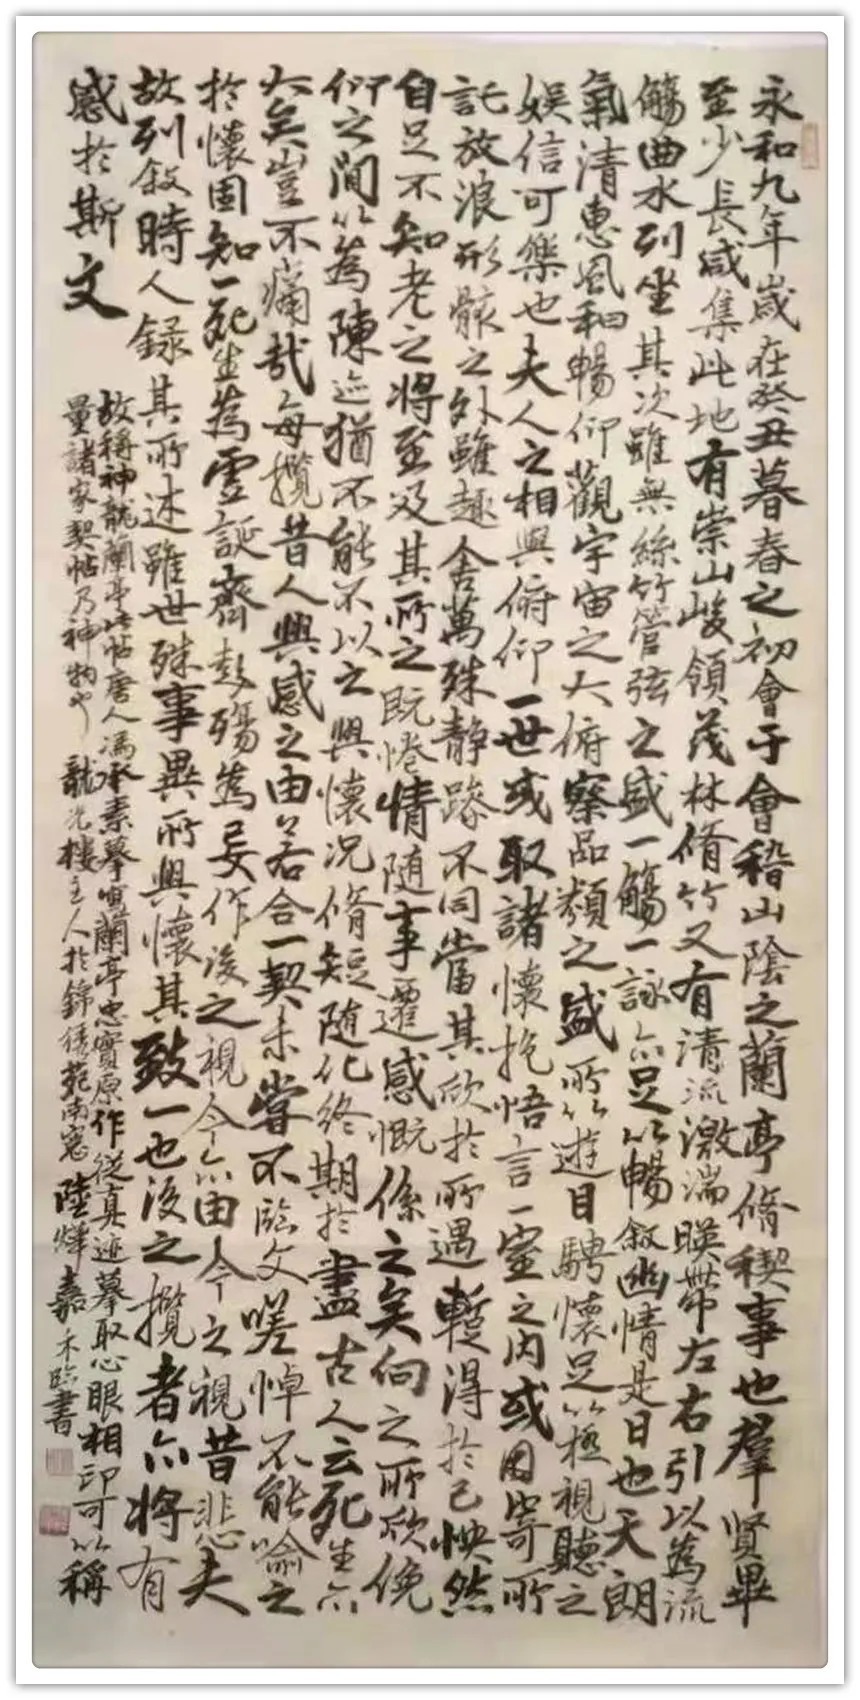 永和九年歲在癸丑暮春之初會于會稽山陰之蘭亭脩稧事也羣賢畢
至少長咸集此地有崇山峻領茂林脩竹又有清流激湍暎帶左右引以為流
觴曲水列坐其次雖無絲竹管弦之盛一觴一詠亦足以暢敘幽情是日也天朗
氣清惠風和暢仰觀宇宙之大俯察品類之盛所以遊目騁懷足以極視聽之
娛信可樂也夫人之相與俯仰一世或取諸懷抱悟言一室之內或因寄所
託放浪形骸之外雖趣舍萬殊靜躁不同當其欣於所遇暫得於己怏然
自足不知老之將至及其所之既惓情随事遷感慨係之矣向之所欣俛
仰之間以為陳迹猶不能不以之興懷況脩短随化終期於盡古人云死生亦
大矣豈不痛哉每攬昔人興感之由若合一契未嘗不臨文嗟悼不能喻之
於懷固知一死生為虛誕齊彭殤為妄作後之視今亦由今之視昔悲夫
故列敘時人錄其所述雖世殊事異所興懷其致一也後之攬者亦將有
感於斯文
故稱神龍蘭亭此帖唐人馮承素摹寫蘭亭忠實原作從真迹摹取心眼相印可以稱
量諸家禊帖乃神物也 龍光樓主人於錦繡苑南窗陸燁嘉禾臨書